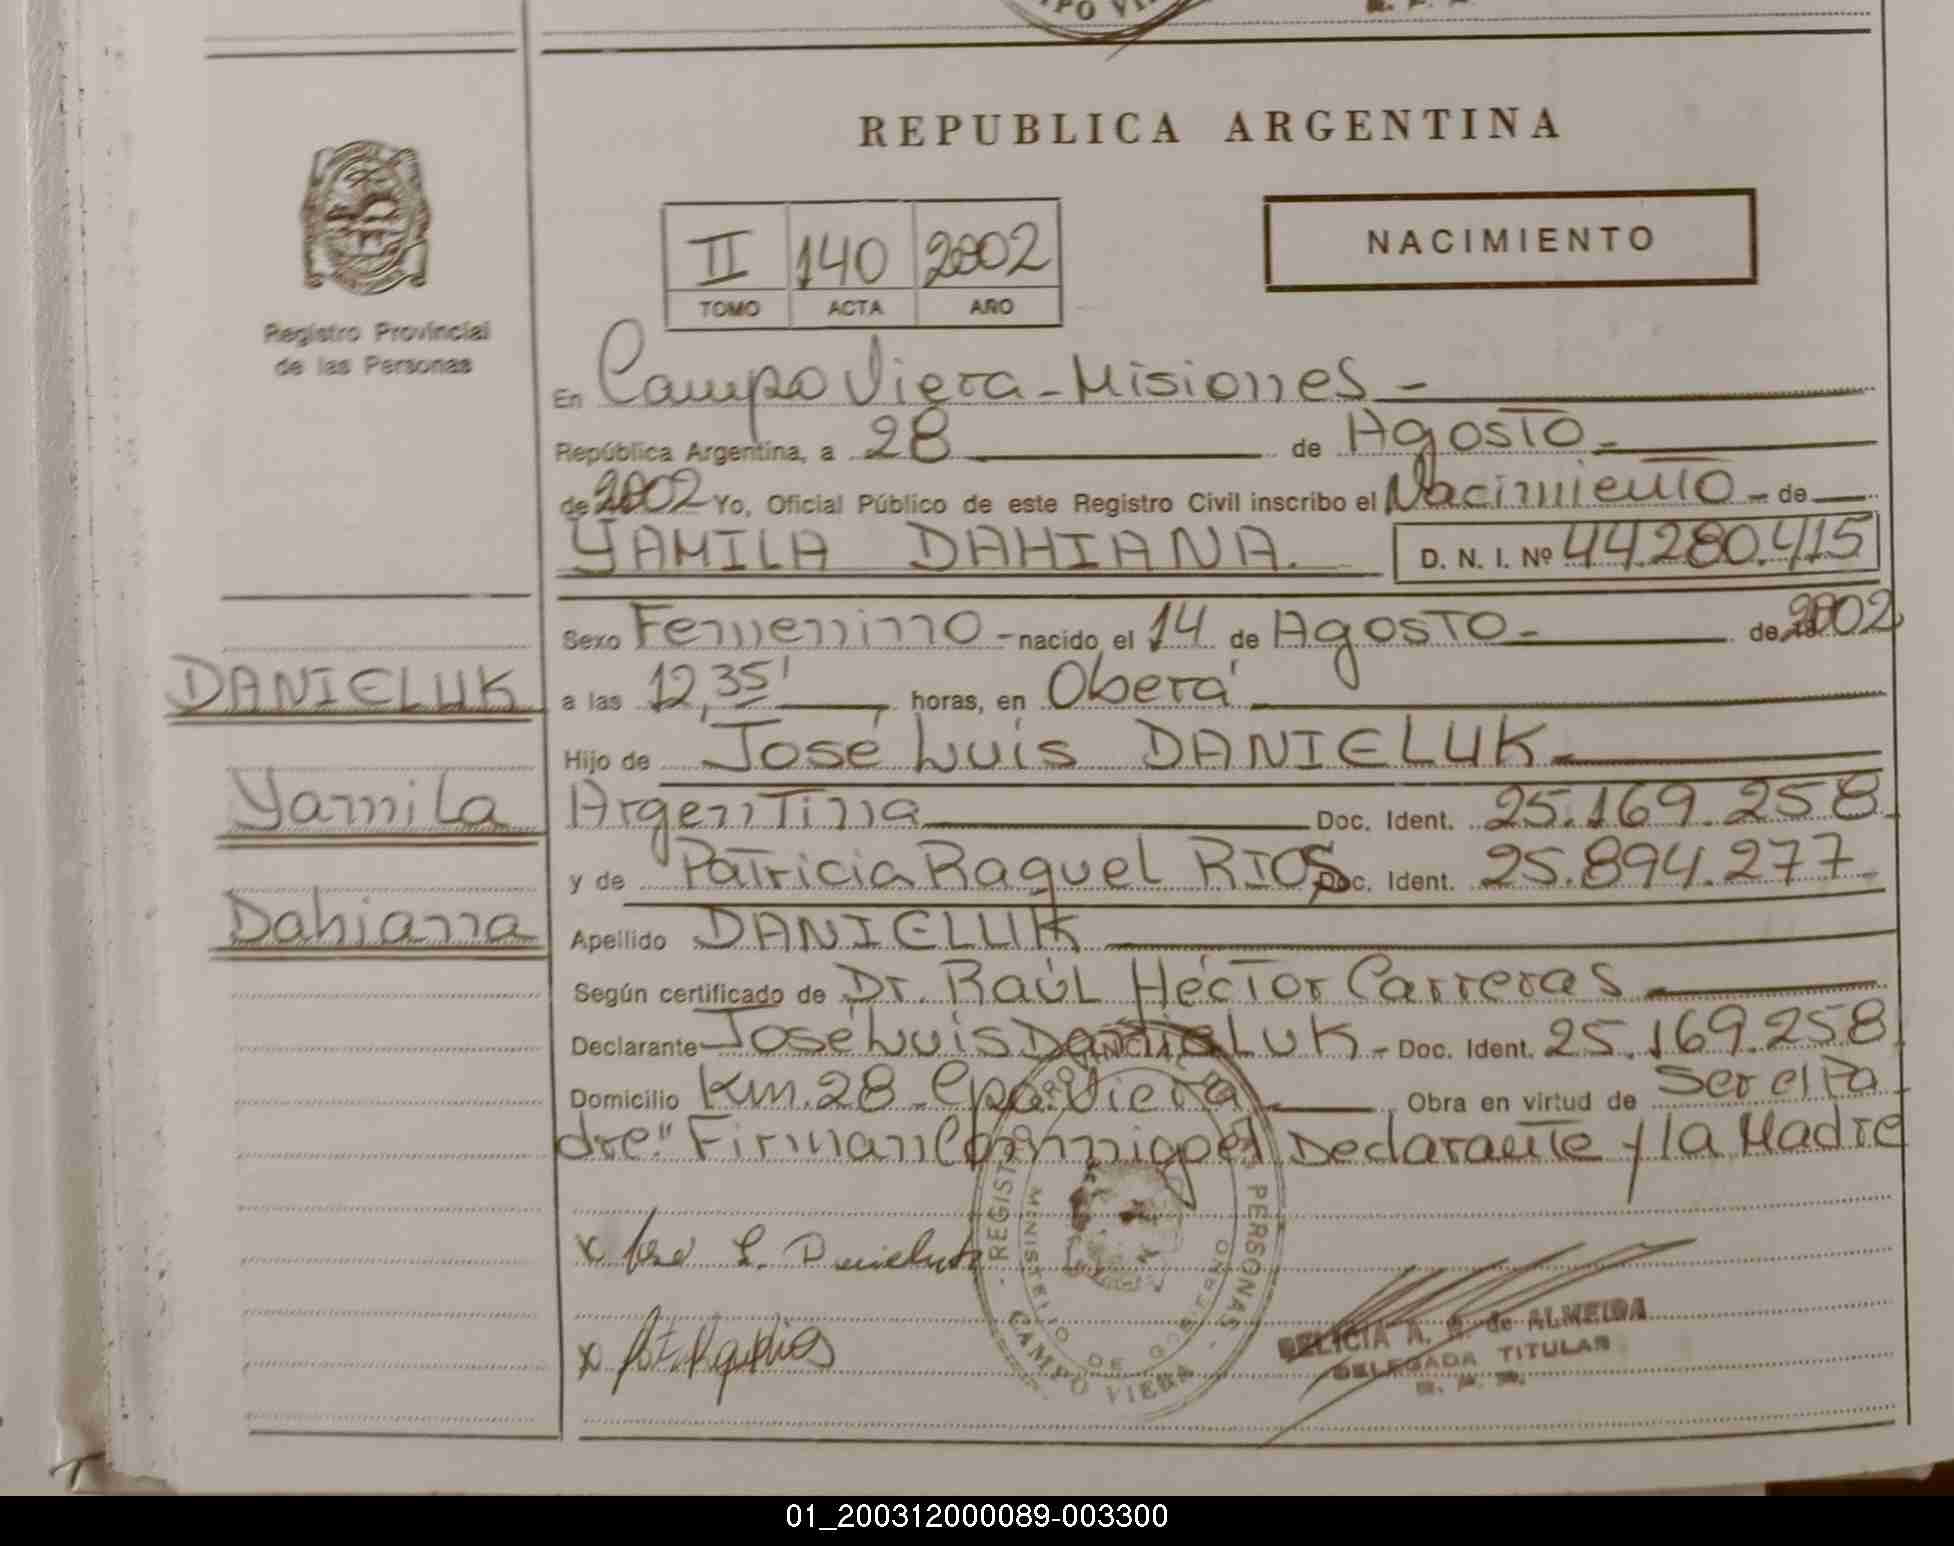 REPUBLICA ARGENTINA
NACIMIENTO
II 140 2002
TOMO ACTA AÑO
Registro Provincial
de las Personas
En Campo Viera - Misiones -
República Argentina, a 28 de Agosto -
de 2002 Yo, Oficial Público de este Registro Civil inscribo el Nacimiento - de
YAMILA DAHIANA. D. N. I. Nº 44.280.415
Sexo Femenino - nacido el 14 de Agosto - de 2002
DANIELUK
a las 12,35' horas, en Oberá
Hijo de José Luis DANIELUK -
Yamila
Argentina Doc. Ident. 25.169.258
y de Patricia Raquel RIOS Doc. Ident. 25.894.277 -
Dahiana
Apellido DANIELUK
Según certificado de Dr. Raúl Héctor Carreras
Declarante José Luis DanieLUK - Doc. Ident. 25.169.258
Domicilio Km. 28 - Cpo. Viera Obra en virtud de ser el Pa-
dre." Firman Conmigo el Declarante y la Madre
x José L. Danieluk
REGISTRO PERSONAS
MINISTERIO DE GOBIERNO
CAMPO VIERA
DELICIA A. de ALMEIDA
DELEGADA TITULAR
01_200312000089-003300